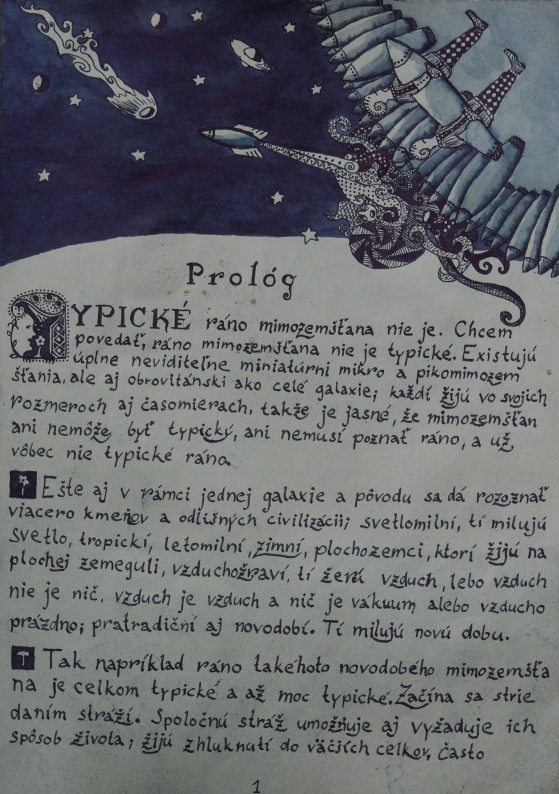 Prológ
TYPICKÉ ráno mimozemšťana nie je. Chcem
povedať, ráno mimozemšťana nie je typické. Existujú
úplne neviditeľne miniatúrni mikro a pikomimozem
šťania, ale aj obrovitánski ako celé galaxie; každí žijú vo svojich
rozmeroch aj časomierach, takže je jasné, že mimozemšťan
ani nemôže byť typický, ani nemusí poznať ráno, a už
vôbec nie typické ráno.
Ešte aj v rámci jednej galaxie a pôvodu sa dá rozoznať
viacero kmeňov a odlišných civilizácií; svetlomilní, tí milujú
svetlo, tropickí, letomilní, zimní, plochozemci, ktorí žijú na
plochej zemeguli, vzduchožraví, tí žerú vzduch, lebo vzduch
nie je nič, vzduch je vzduch a nič je vákuum alebo vzducho
prázdno; pratradiční aj novodobí. Tí milujú novú dobu.
Tak napríklad ráno takéhoto novodobého mimozemšťa
na je celkom typické a až moc typické. Začína sa strie
daním stráží. Spoločnú stráž umožňuje aj vyžaduje ich
spôsob života; žijú zhluknutí do väčších celkov, často
1